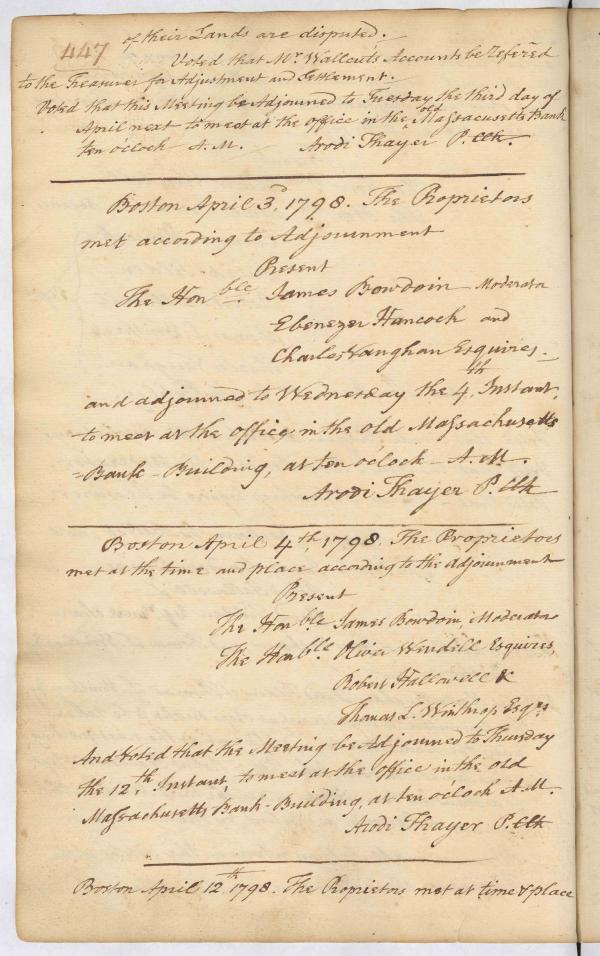 447
of their Lands are disputed.
Voted that Mr. Wallcuts Accounts be Refered
to the Treasurer for Adjustment and Settlement.
Voted that this Meeting be Adjourned to Tuesday the third day of
April next to meet at the office in the old Massacusetts Bank
ten oClock A.M. Arodi Thayer P. Clk.
Boston April 3d, 1798. The Proprietors
met according to Adjournment
Present
The Honble James Bowdoin Moderator
Ebenezer Hancock and
Charles Vaughan Esquires
and adjourned to Wednesday the 4th, Instant,
to meet at the office, in the old Massachusetts
=Bank-Building, at ten oClock A.M.
Arodi Thayer P. Clk
Boston April 4th, 1798. The Proprietors
met at the time and place according to the adjournment
Present
The Honble James Bowdoin, Moderator
The Honble Oliver Wendell Esquires,
Robert Hallowell &
Thomas L. Winthrop Esqrs
And Voted that the Meeting be Adjourned to Thursday
the 12,th Instant, to meet at the office in the old
Massachusetts Bank-Building, at ten oClock A.M.
Arodi Thayer P. Clk
Boston April 12th 1798. The Proprietors met at time & place